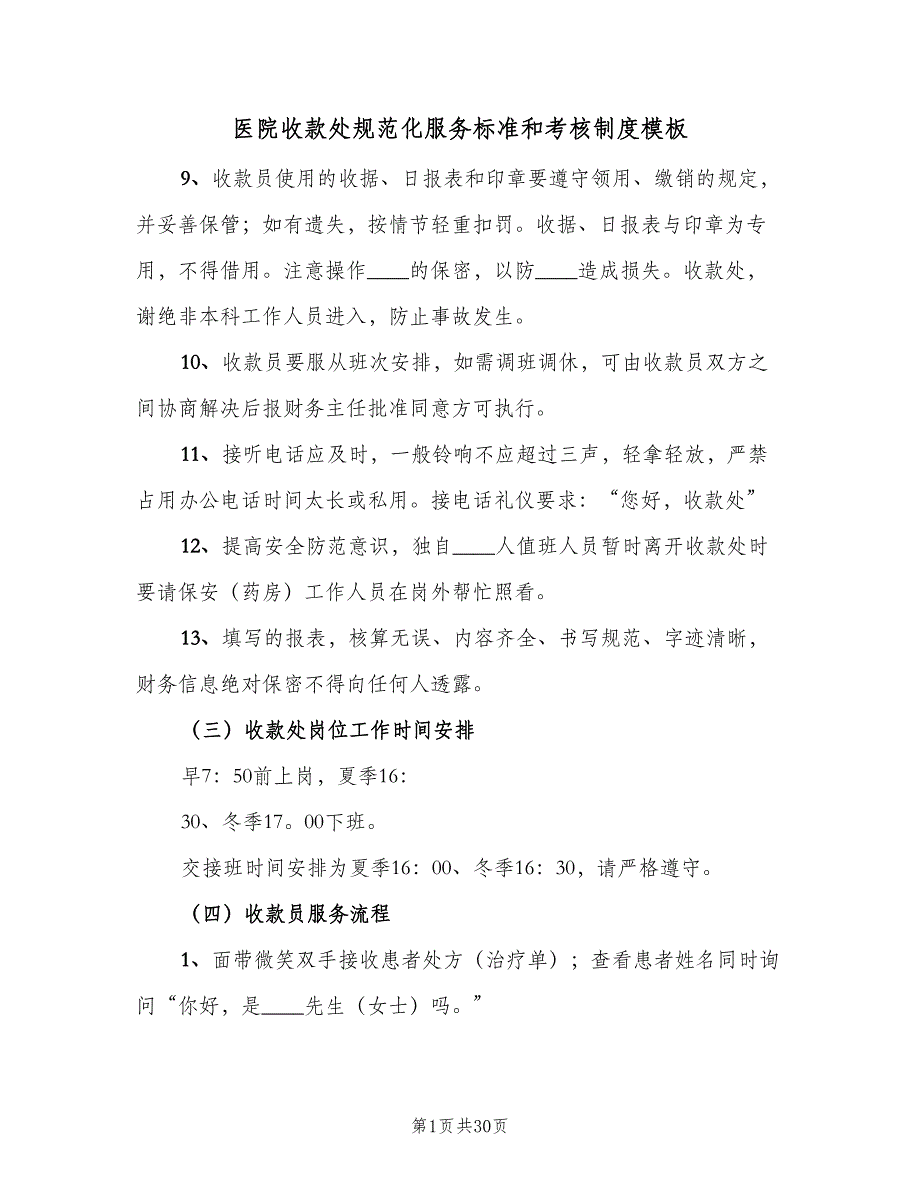 医院收款处规范化服务标准和考核制度模板
9、收款员使用的收据、日报表和印章要遵守领用、缴销的规定，
并妥善保管；如有遗失，按情节轻重扣罚。收据、日报表与印章为专
用，不得借用。注意操作____的保密，以防____造成损失。收款处，
谢绝非本科工作人员进入，防止事故发生。
10、收款员要服从班次安排，如需调班调休，可由收款员双方之
间协商解决后报财务主任批准同意方可执行。
11、接听电话应及时，一般铃响不应超过三声，轻拿轻放，严禁
占用办公电话时间太长或私用。接电话礼仪要求：“您好，收款处”
12、提高安全防范意识，独自____人值班人员暂时离开收款处时
要请保安（药房）工作人员在岗外帮忙照看。
13、填写的报表，核算无误、内容齐全、书写规范、字迹清晰，
财务信息绝对保密不得向任何人透露。
（三）收款处岗位工作时间安排
早7：50前上岗，夏季16：
30、冬季17。00下班。
交接班时间安排为夏季16：00、冬季16：30，请严格遵守。
（四）收款员服务流程
1、面带微笑双手接收患者处方（治疗单）；查看患者姓名同时询
问“你好，是____先生（女士）吗。”
第1页共30页